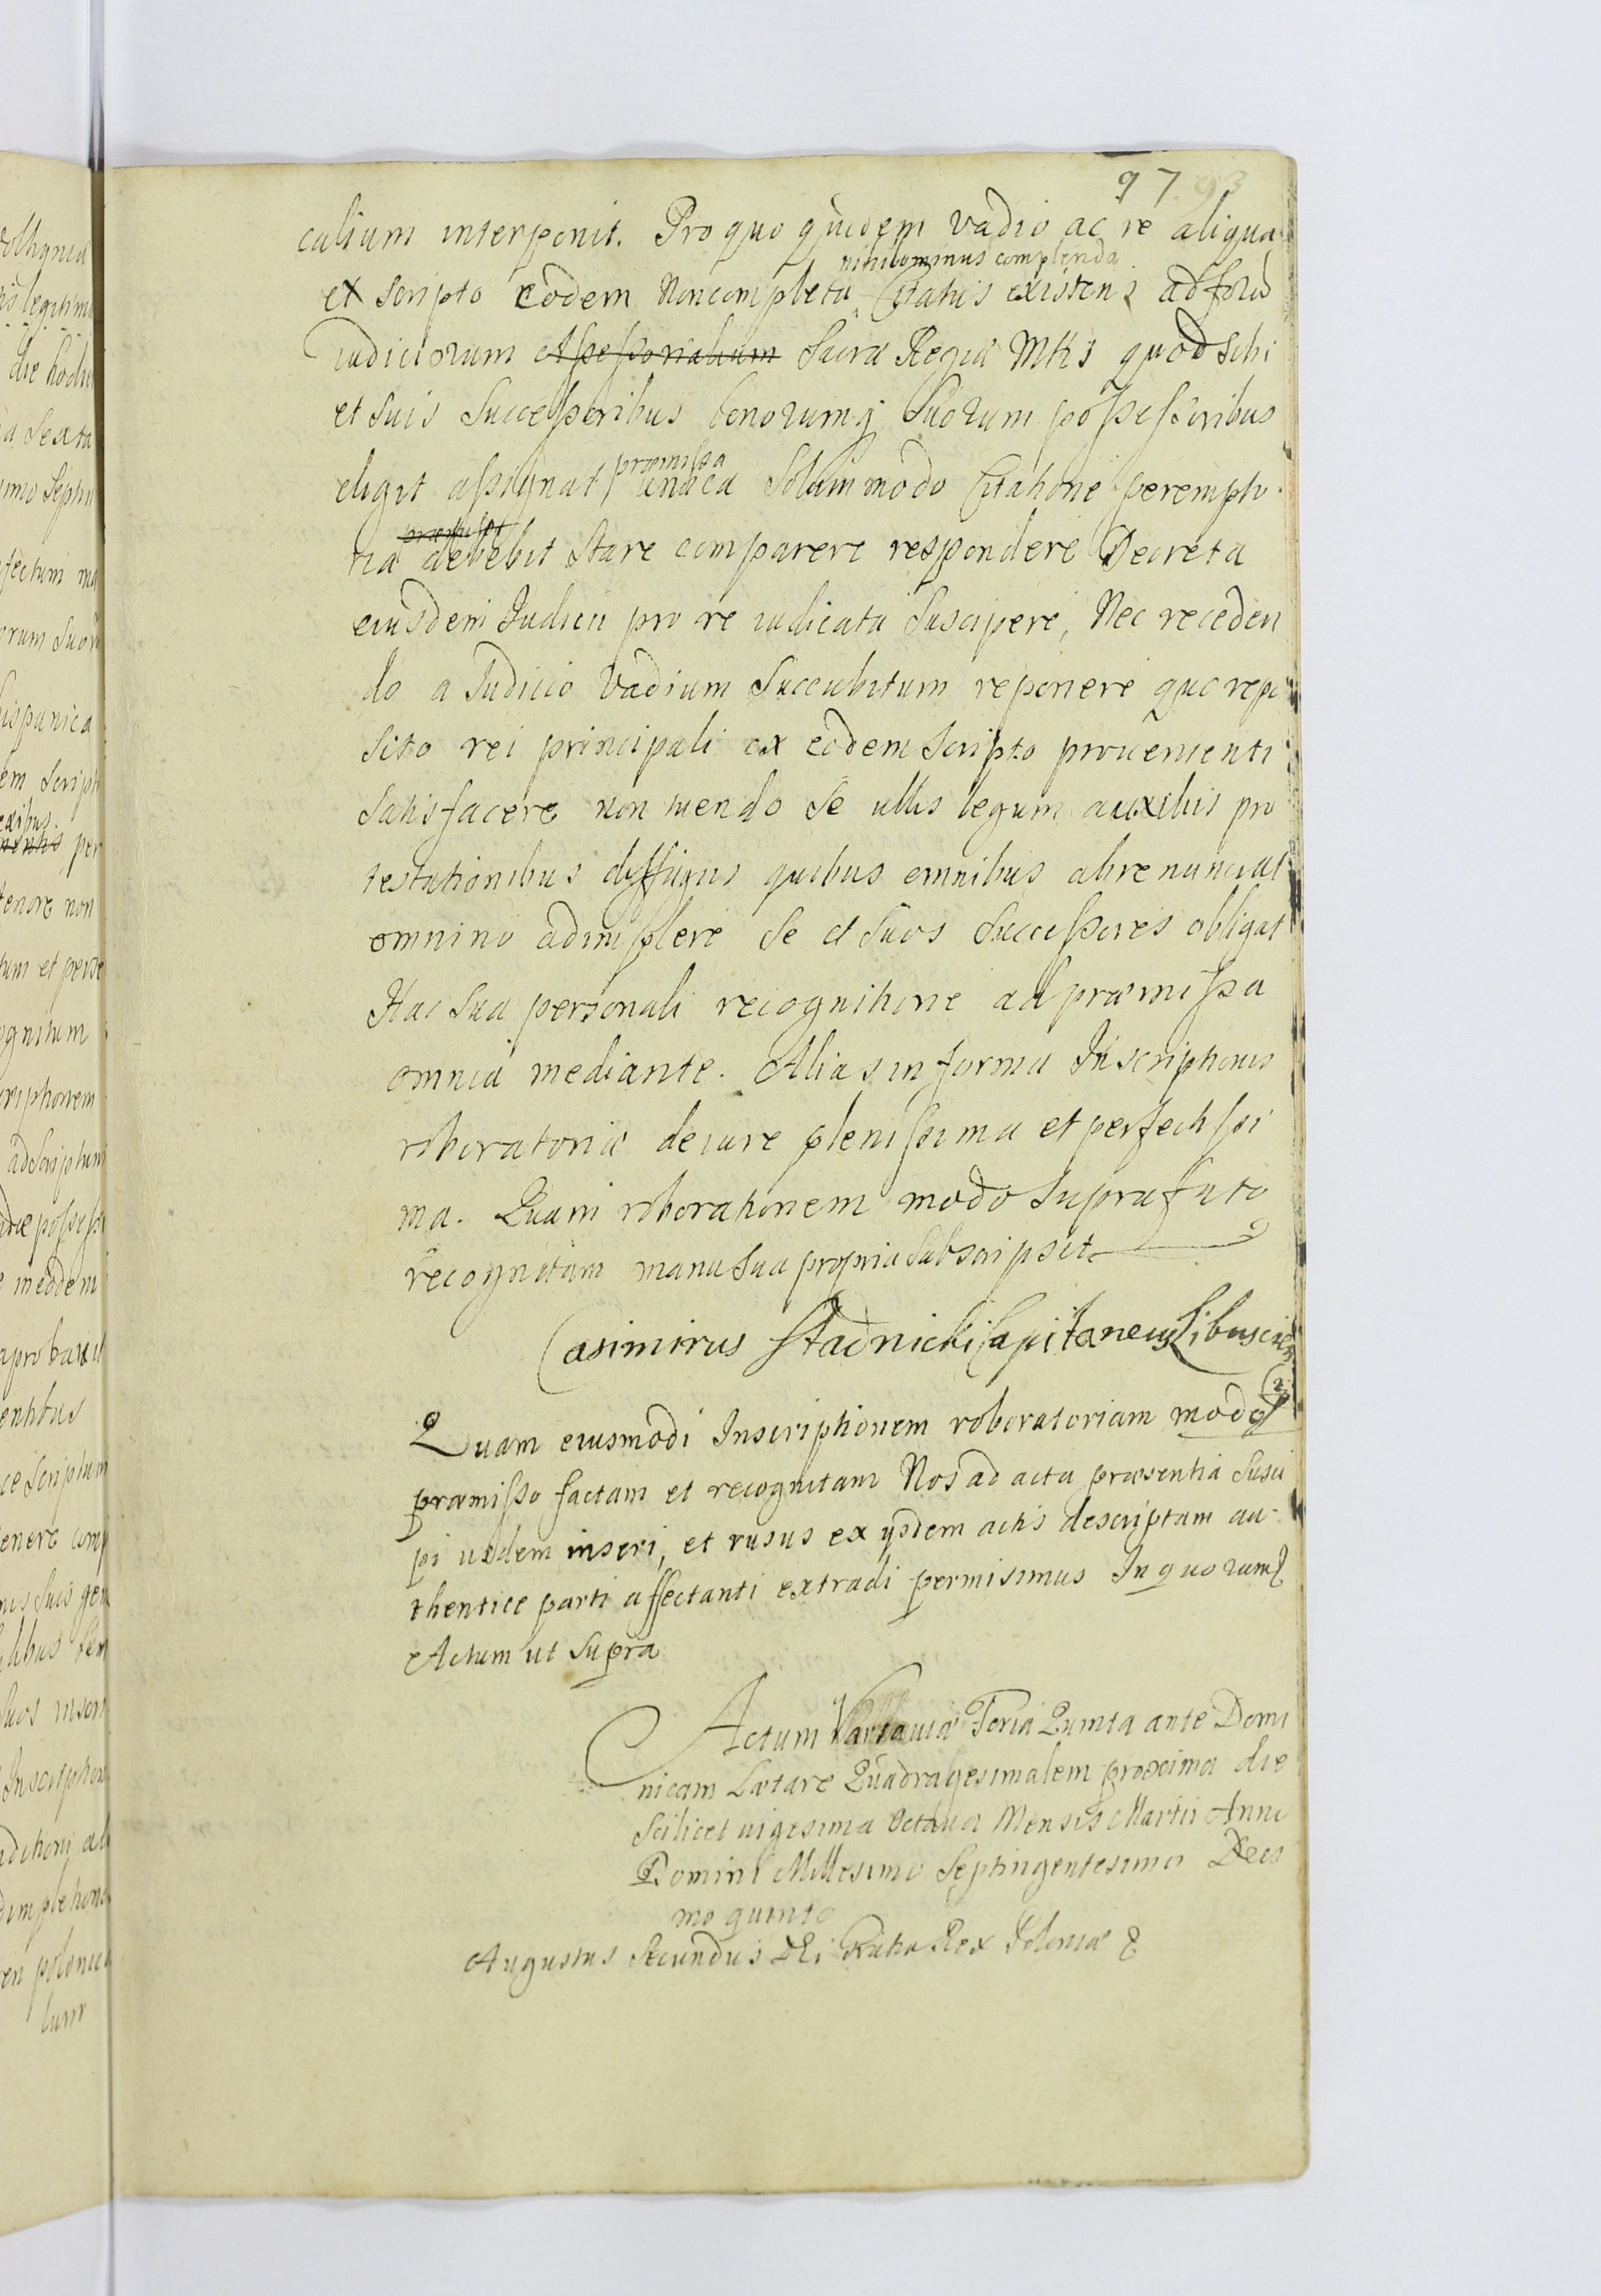 97 93
culium interponit. Pro quo quidem vadio ac re aliqua
nihilominus complenda
ex scripto eodem non completa Citatus existens ad forū
iudiciorum Assessorialium Sacræ Regiæ Mttis quod sibi
et suis successoribus bonorumq suorum possessoribus
præmissa
eligit assignat unica solummodo Citatione perempto
præmissa
ria debebit stare comparere respondere Decreta
eiusdem Iudicii pro re iudicata suscipere, Nec receden
do a Iudicio vadium succubitum reponere quo repo
sito rei principali ex eodem scripto provenienti
satisfacere non tuendo se ullis legum auxiliis pro
testationibus diffugiis quibus omnibus abrenunciat
omnino adimplere se et suos successores obligat
Hac sua personali recognitione ad præmissa
omnia mediante. Alias in forma Inscriptionis
roboratoriæ de iure plenissima et perfectissi
ma. Quam roborationem modo suprafato
recognitam manu sua propria subscripsit
Casimirus Stadnicki Capitaneus Libuscien
Quam eiusmodi Inscriptionem roboratoriam modo
præmisso factam et recognitam Nos ad acta præsentia susci
pi iisdem inseri, et rusus ex ysdem actis descriptam au
thentice parti affectanti extradi permisimus In quorum
Actum ut supra
Actum Varsaviæ Feria Quinta ante Domi
nicam Lætare Quadragesimalem proxima die
scilicet vigesima octava Mensis Martii Anno
Domini Millesimo Septingentesimo Deci
mo quinto
Augustus Secundus DEi Gratia Rex Poloniæ